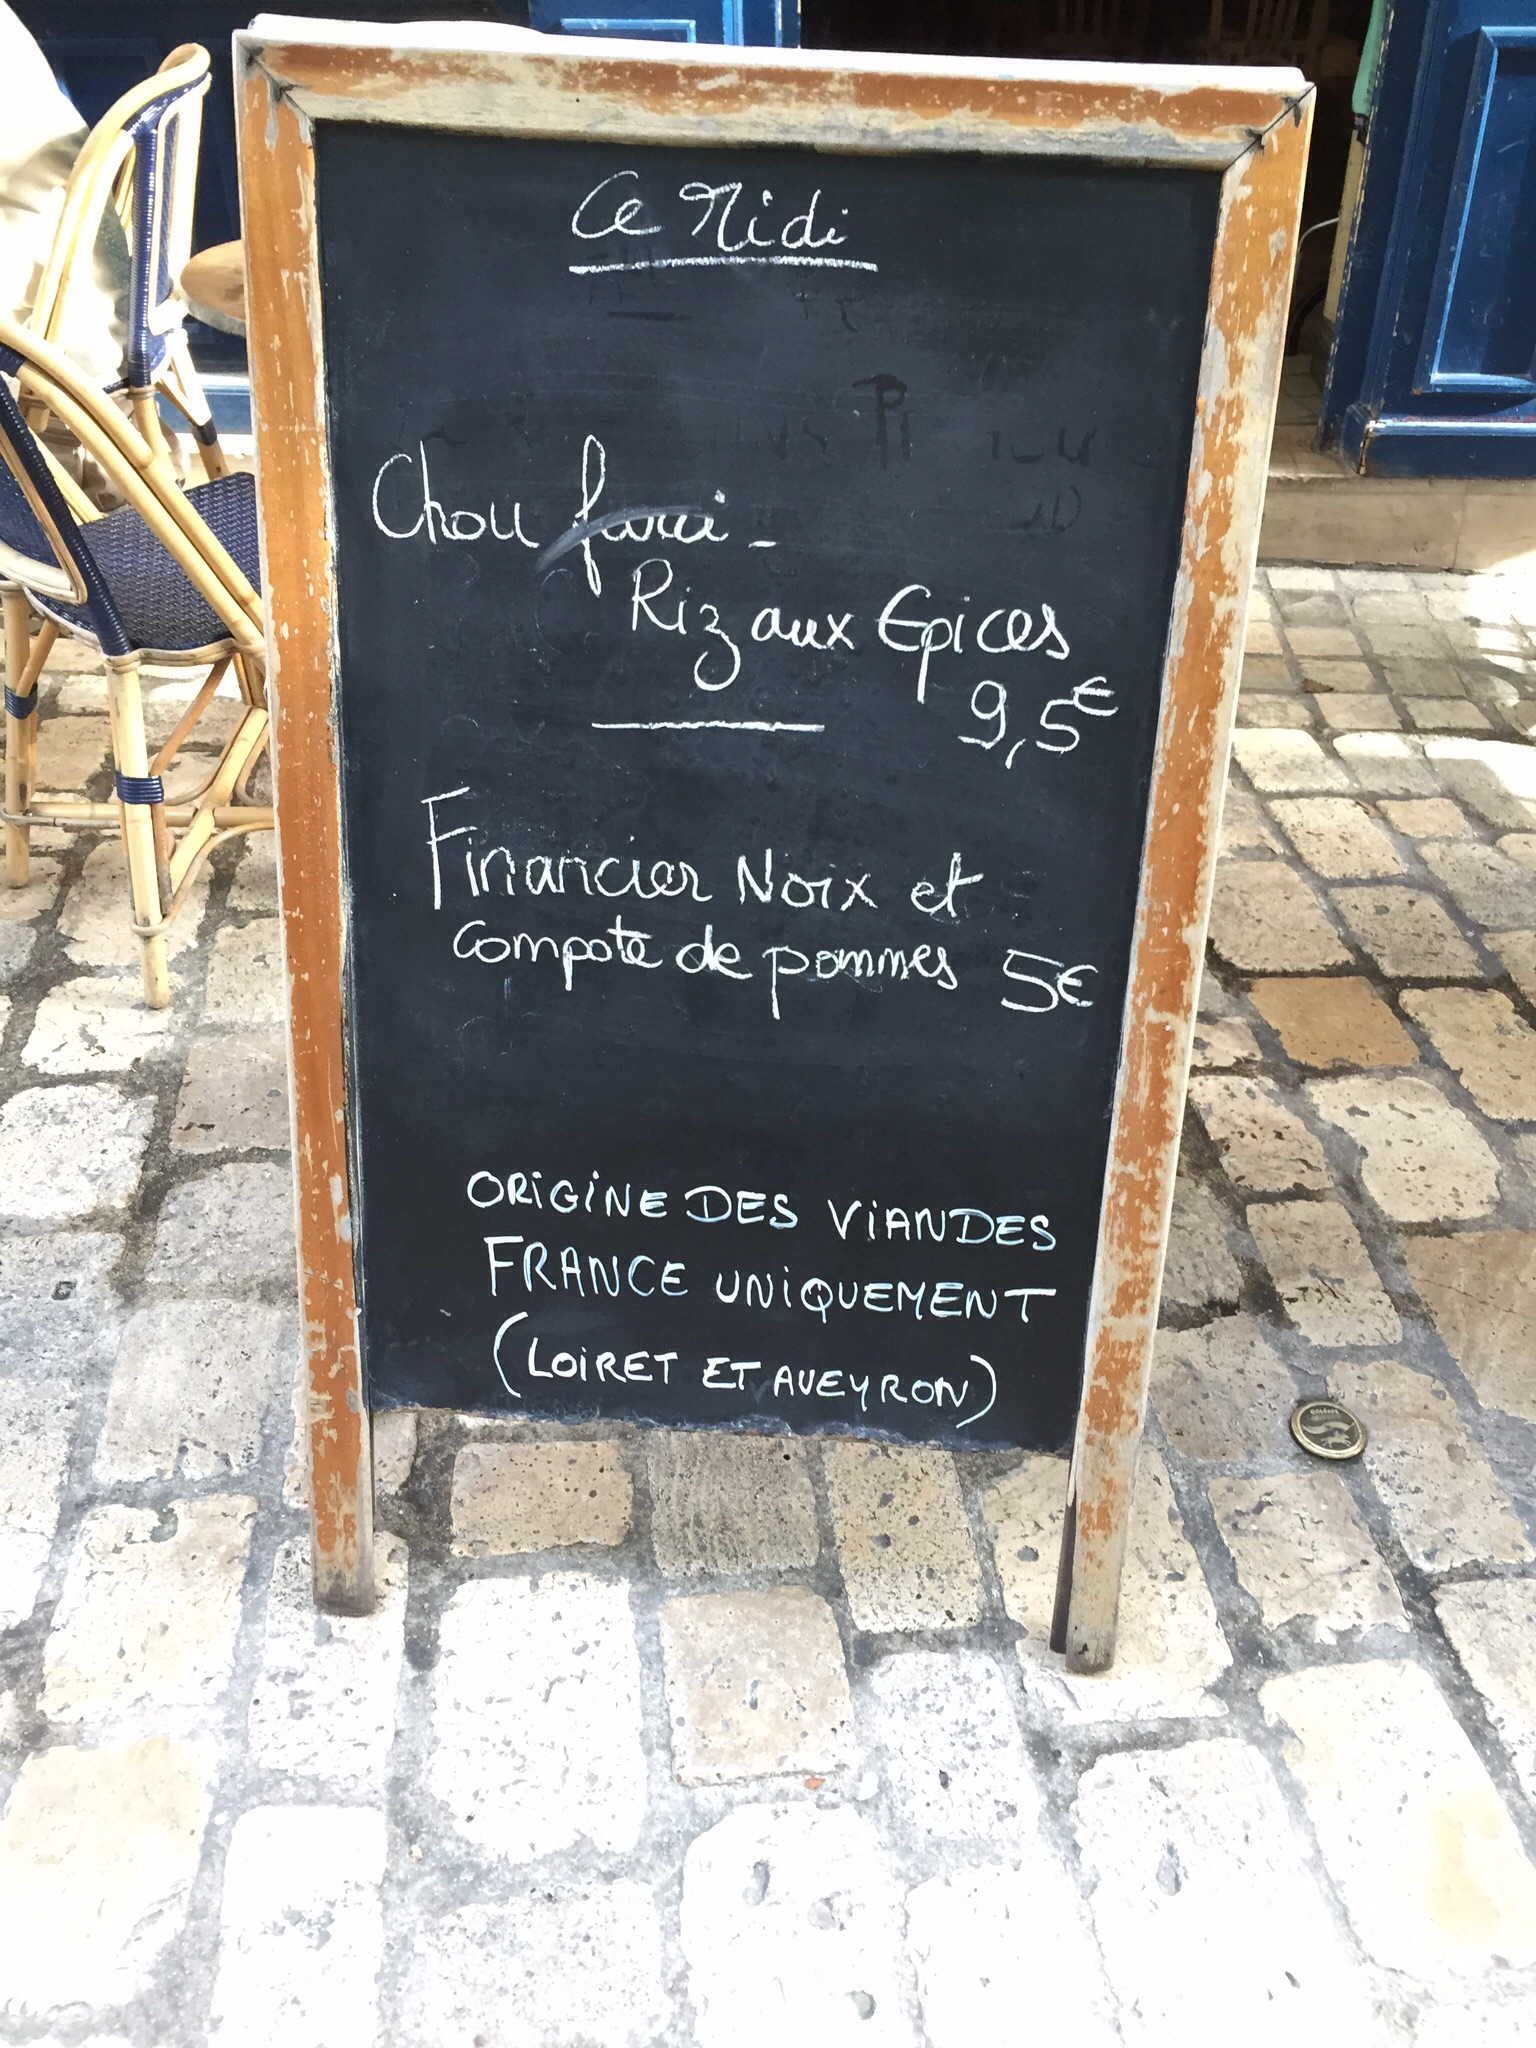 Ce Midi
Chou farci -
Riz aux Epices
9,5€
Financier Noix et
compote de pommes 5€
ORIGINE DES VIANDES
FRANCE UNIQUEMENT
(LOIRET ET AVEYRON)